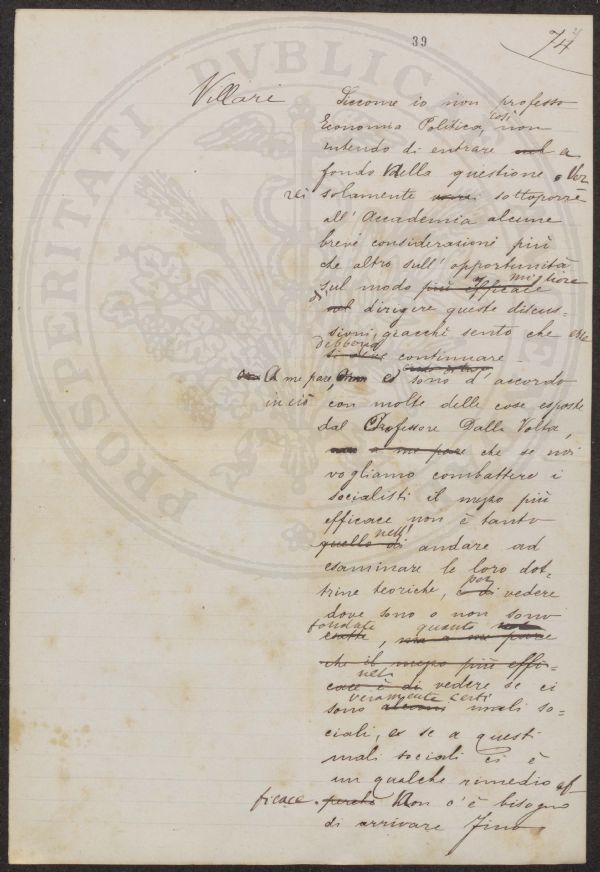 39
74
Villari
Siccome io non professo
Economia Politica, così non
intendo di entrare nel a
fondo della questione. Vor
rei solamente sottoporre
all' Accademia alcune
brevi considerazioni più
che altro sull' opportunità
sul modo più efficace migliore
di dirigere queste discus=
sioni, giacchè sento che esse
si deve debbono continuare.
A me pare, ed sono d'accordo
in ciò con molte delle cose esposte
dal Professore Dalla Volta,
a me pare che se noi
vogliamo combattere i
socialisti il mezzo più
efficace non è tanto
quello di nell' andare ad
esaminare le loro dot=
trine teoriche, per vedere
dove sono o non sono
fondate, quanto ma a me pare
che il mezzo più effi=
cace è di nel vedere se ci
sono veramente certi mali so=
ciali, e se a questi
mali sociali ci è
un qualche rimedio ef=
ficace. perchè Non c'è bisogno
di arrivare fino
PROSPERITATI PVBLIC